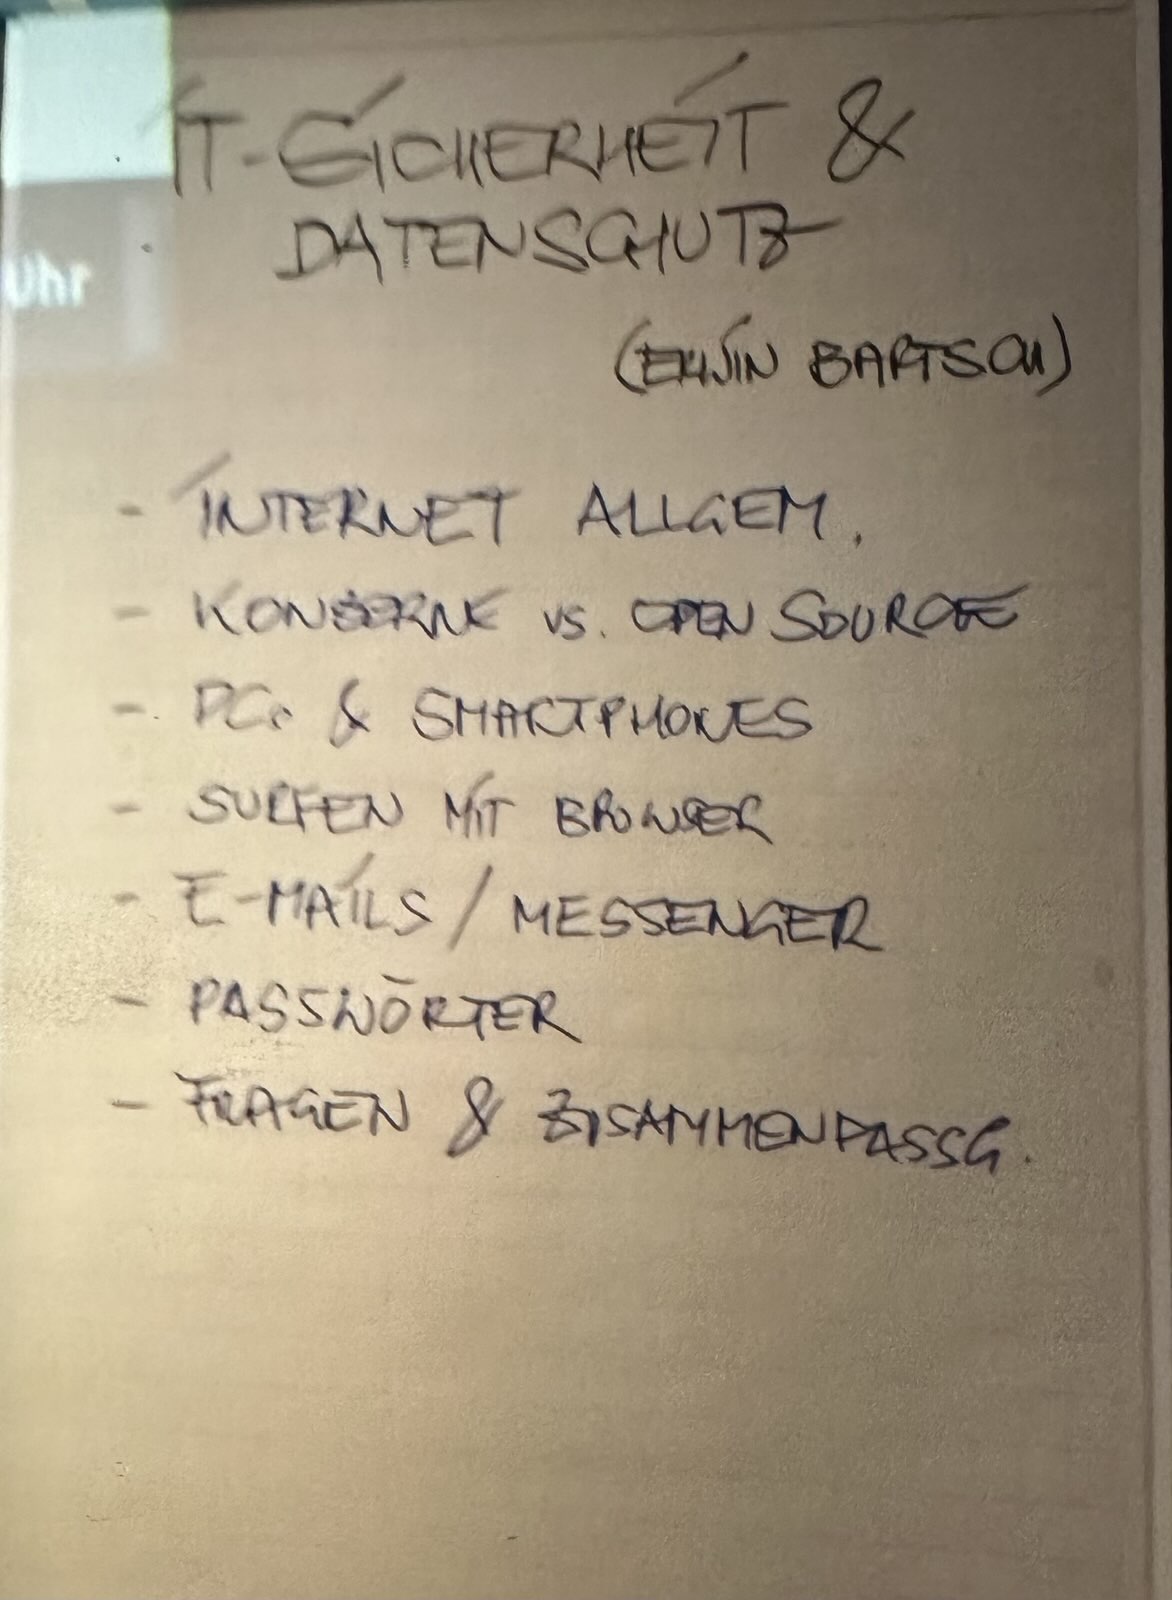 IT-SICHERHEIT &
DATENSCHUTZ
Uhr
(ERWIN BARTSCH)
- INTERNET ALLGEM.
- KONZERNE vs. OPEN SOURCE
- PCs & SMARTPHONES
- SURFEN MIT BROWSER
- E-MAILS / MESSENGER
- PASSWÖRTER
- FRAGEN & ZUSAMMENFASSG.